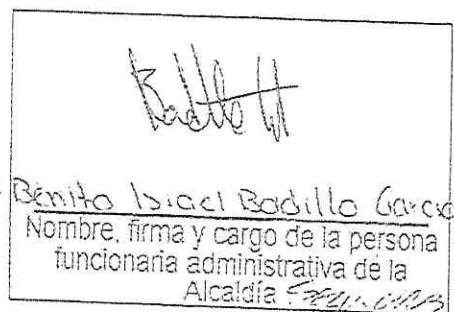 Benito Isiael Badillo Garcia
Nombre, firma y cargo de la persona
funcionaria administrativa de la
Alcaldía